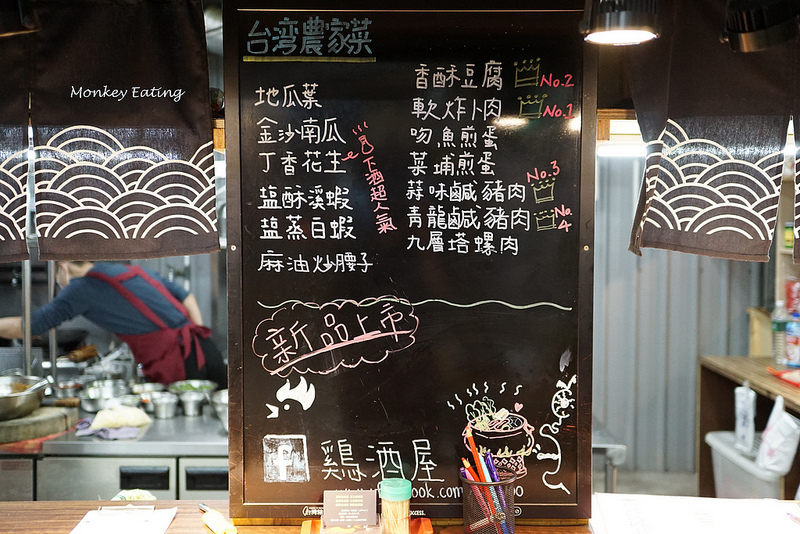 Monkey Eating
台湾農家菜
地瓜葉
金沙南瓜
丁香花生
鹽酥溪蝦
鹽蒸白蝦
麻油炒腰子
下酒超人氣
香酥豆腐 No.2
軟炸卜肉 No.1
吻魚煎蛋
菜埔煎蛋
蒜味鹹豬肉 No.3
青龍鹹豬肉 No.4
九層塔螺肉
新品上市
f 鶏酒屋
ook.com